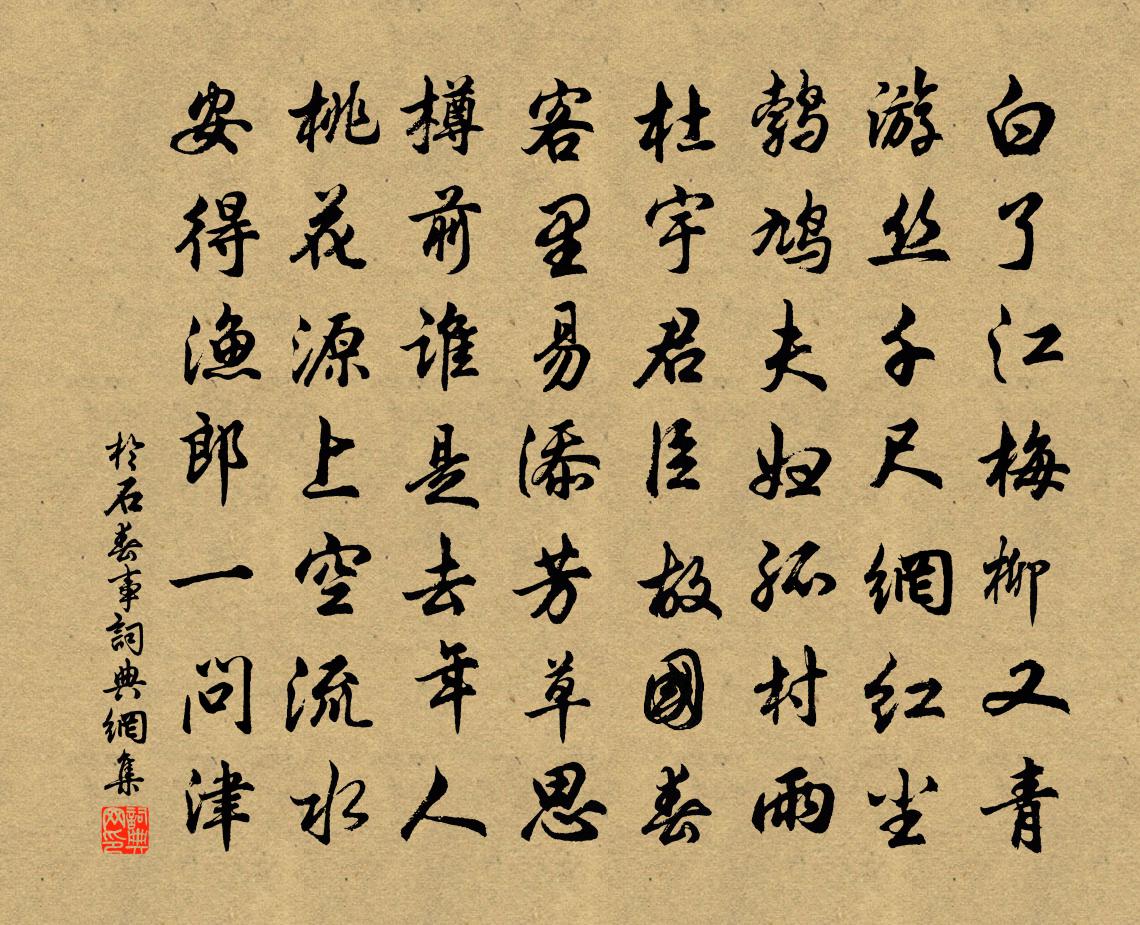 白了江梅柳又青
游丝千尺網红尘
鹁鸠夫妇孤村雨
杜宇君臣故國春
客里易添芳草思
樽前谁是去年人
桃花源上空流水
安得漁郎一问津
於石春事詞典網集
詞典网印